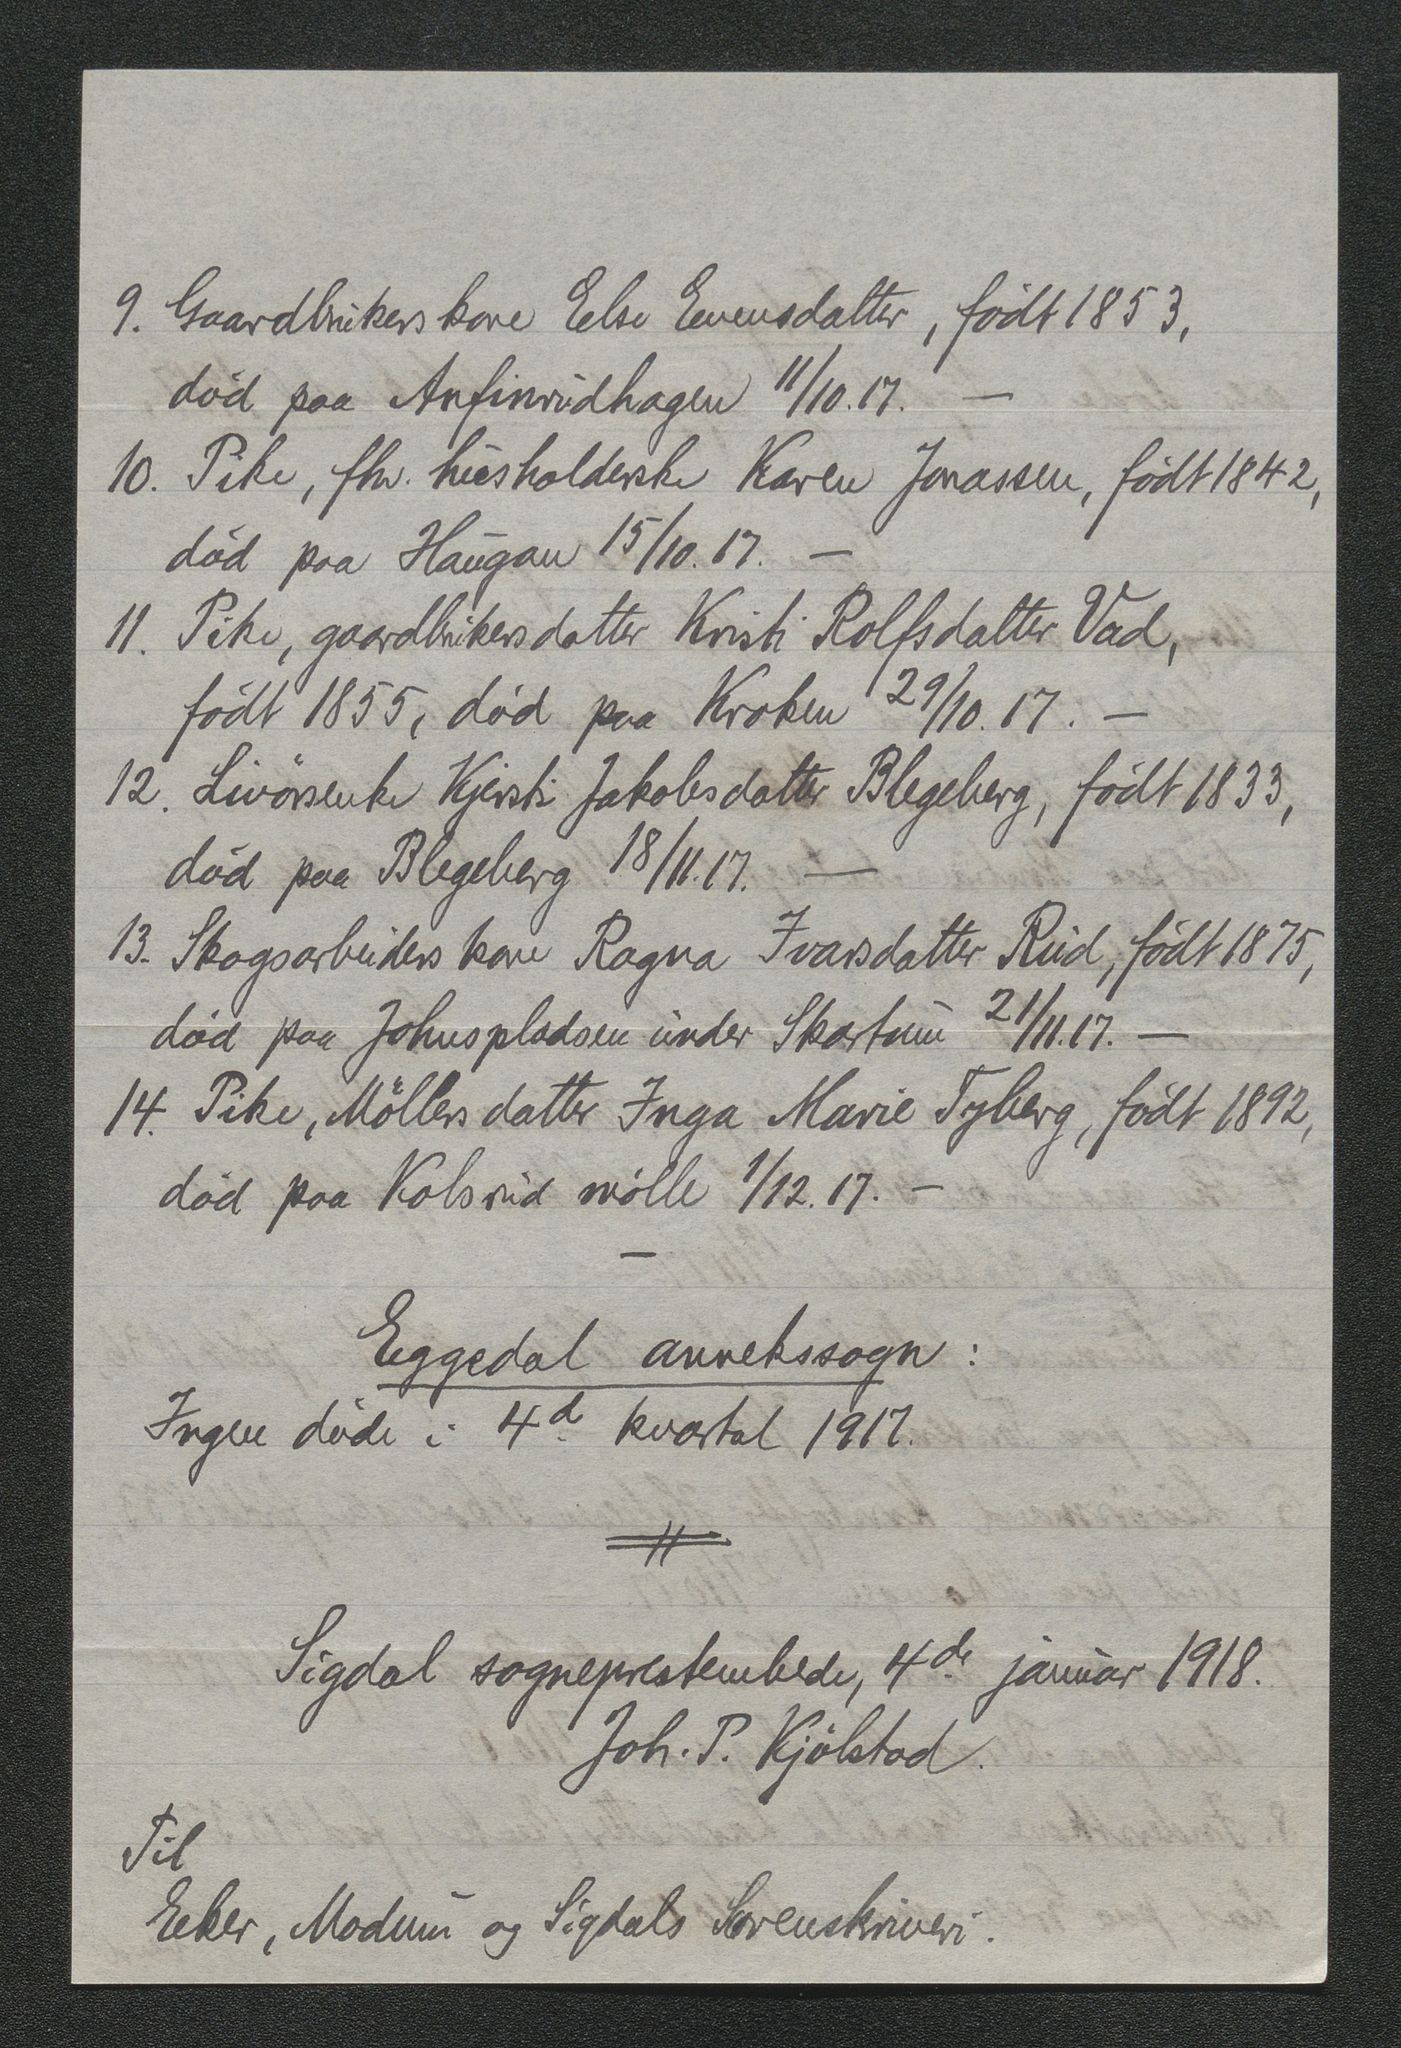 9. Gaardbrukerskone Else Evensdatter, födt 1853,
död paa Anfinrudhagen 11/10.17. —
10. Pike, fhv. husholderske Karen Jonassen, födt 1842,
död paa Haugan 15/10.17. —
11. Pike, gaardbrukersdatter Kristi Rolfsdatter Vad,
födt 1855, död paa Kroken 29/10.17. —
12. Livörsenke Kjersti Jakobsdatter Blegeberg, födt 1833,
död paa Blegeberg 18/11.17. —
13. Skogsarbeiderskone Ragna Ivarsdatter Rud, födt 1875,
död paa Johnspladsen under Skartum 21/11.17. —
14. Pike, Möllersdatter Inga Marie Tyberg, födt 1892,
död paa Kolsrud mölle 1/12.17. —
—
Eggedal annekssogn:
Ingen döde i 4d kvartal 1917.
Sigdal sogneprestembede, 4de januar 1918.
Joh. P. Kjölstad.
Til
Eker, Modum og Sigdals Sorenskriveri.